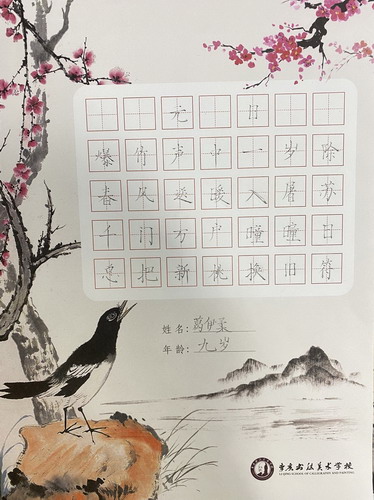 元日
爆竹声中一岁除
春风送暖入屠苏
千门万户曈曈日
总把新桃换旧符
姓名:葛伊柔
年龄:九岁
书法美术学校